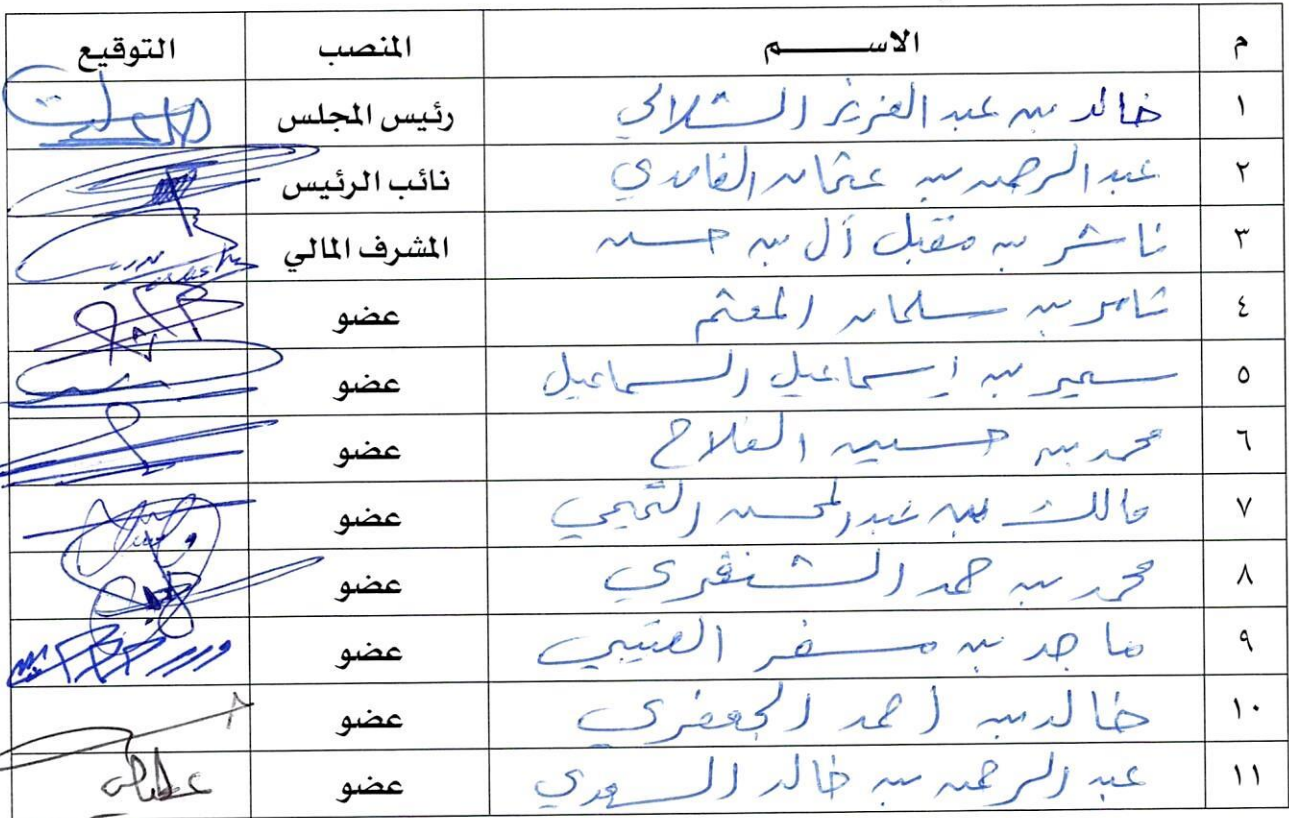 م الاســـــم المنصب التوقيع
١ خالد بن عبد العزيز الشلالي رئيس المجلس
٢ عبد الرحمن بن عثمان الغامدي نائب الرئيس
٣ ناشر بن مقبل آل بن حسنه المشرف المالي
٤ ثامر بن سلمان المعثم عضو
٥ سمير بن إسماعيل السماعيل عضو
٦ محمد بن حسين الفلاح عضو
٧ مالك بن عبدالمحسن التميمي عضو
٨ محمد بن حمد الشنقري عضو
٩ ماجد بن مسفر العتيبي عضو
١٠ خالد بن أحمد الجعفري عضو
١١ عبد الرحمن بن خالد عضو